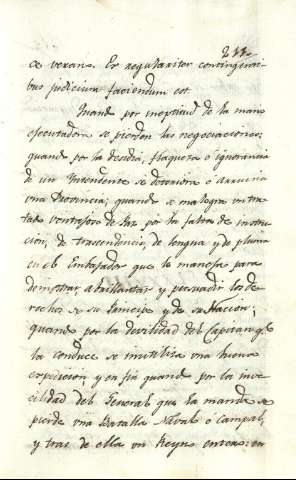 de verano. Ex regulariter contingenti-
bus judicium faciendum est
Quando por ineptitud de la mano
executadora se pierden las negociaciones;
quando por la desidia, flaqueza ó ignorancia
de un Intendente se deteriora ó arruina
una Provincia; quando se malogra un tra-
tado ventajoso de Paz por la falta de instruc-
cion, de trascendencia, de lengua y de pluma
en el Embajador que lo maneja para
demostrar, abrillantar y persuadir los de-
rechos de su Principe y de su Nacion;
quando por la devilidad del Capitan q.e
la conduce se inutiliza una buena
expedicion y en fin quando por la inva-
lidad del General que la manda se
pierde una Batalla Naval ó Campal,
y tras de ella un Reyno entero: en